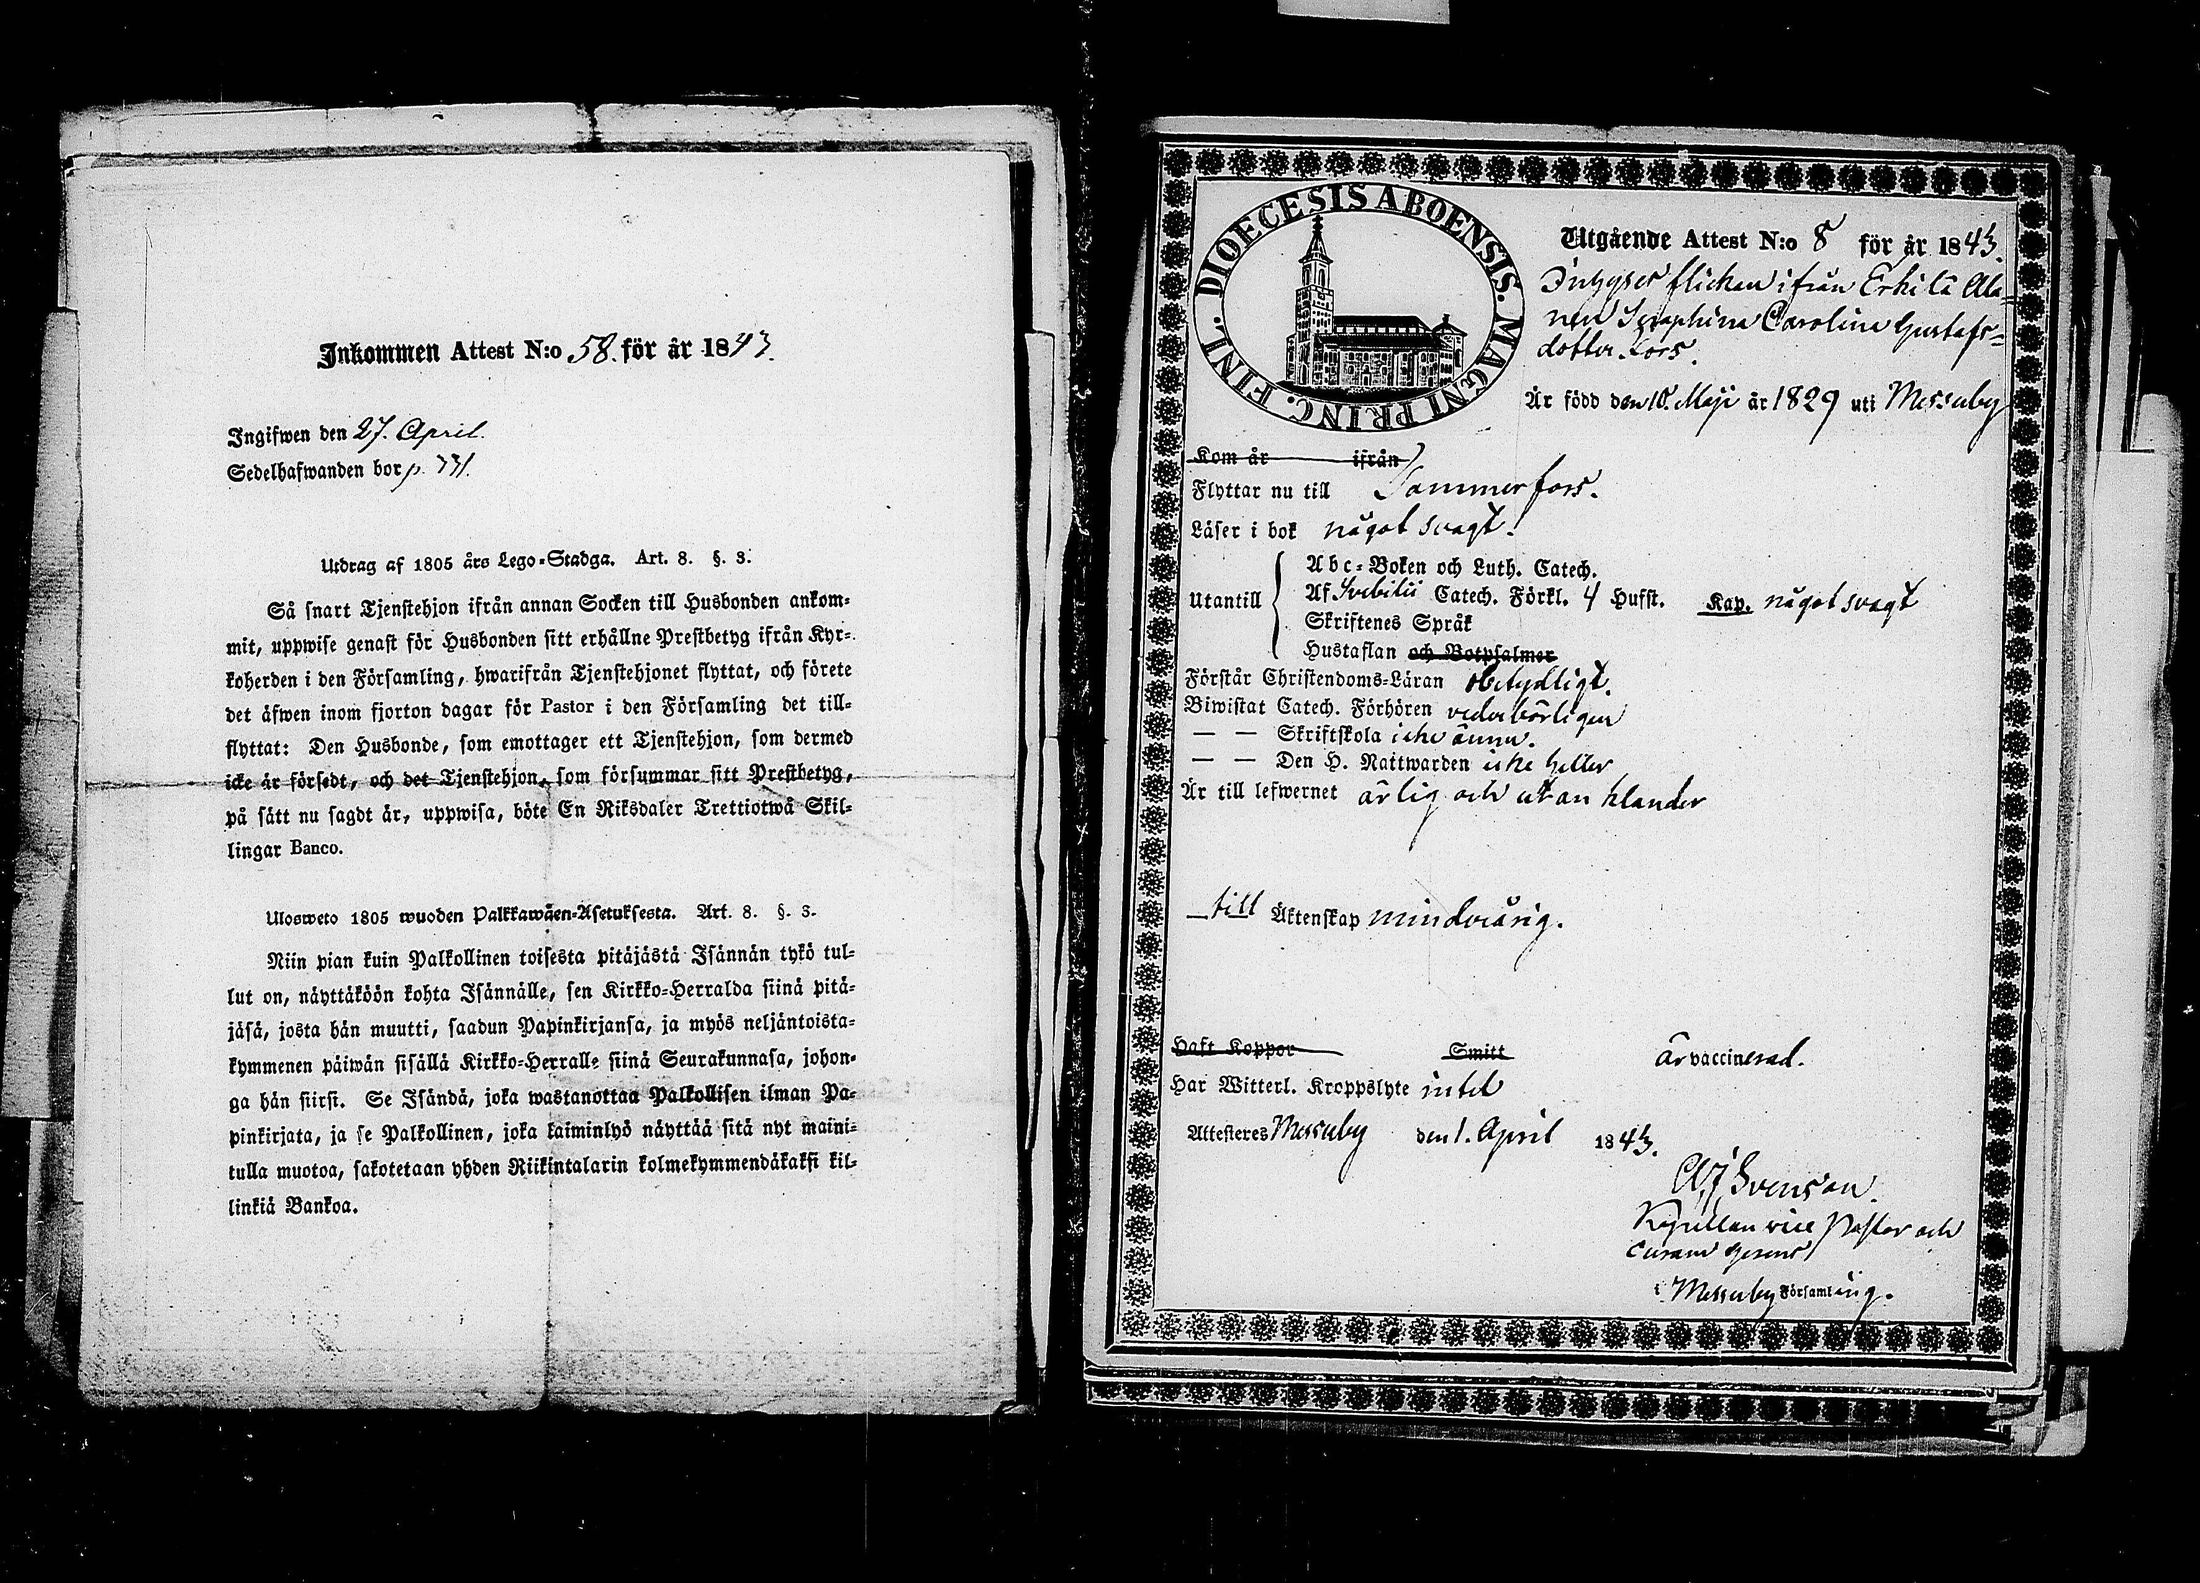 Inkommen Attest N:o 58. för år 1843.
Ingifwen den 27. April.
Sedelhafwanden bor p. 331.
Utdrag af 1805 års Lego-Stadga. Art. 8. §. 3.
Så snart Tjenstehjon ifrån annan Socken till Husbonden ankom-
mit, uppwise genast för Husbonden sitt erhållne Prestbetyg ifrån Kyr-
koherden i den Församling, hwarifrån Tjenstehjonet flyttat, och förete
det äfwen inom fjorton dagar för Pastor i den Församling det till-
flyttat: Den Husbonde, som emottager ett Tjenstehjon, som dermed
icke är försedt, och det Tjenstehjon, som försummar sitt Prestbetyg,
på sätt nu sagdt är, uppwisa, böte En Riksdaler Trettiotwå Skil-
lingar Banco.
Ulosweto 1805 wuoden Palkkawäen-Asetuksesta. Art. 8. §. 3.
Niin pian kuin Palkollinen toisesta pitäjästä Isännän tykö tul-
lut on, näyttäköön kohta Isännälle, sen Kirkko-Herralda siinä pitä-
jäsä, josta hän muutti, saadun Papinkirjansa, ja myös neljäntoista-
kymmenen päiwän sisällä Kirkko-Herralle siinä Seurakunnasa, johon-
ga hän siirsi. Se Isändä, joka wastanottaa Palkollisen ilman Pa-
pinkirjata, ja se Palkollinen, joka laiminlyö näyttää sitä nyt maini-
tulla muotoa, sakotetaan yhden Riikintalarin kolmekymmendäkaksi kil-
linkiä Bankoa.
DIOECESIS ABOENSIS. MAGNI PRINC. FINL.
Utgående Attest N:o 8 för år 1843.
Intygser flickan ifrån Erkilä Ala-
nen Seraphina Carolina Gustafs-
dotter Fors.
Är född den 10. Maji år 1829 uti Messuby
Kom år ifrån
Flyttar nu till Tammerfors.
Läser i bok något svagt.
Utantill
Abc-Boken och Luth. Catech.
Af Svebilii Catech. Förkl. 4 Hufst. Kap. något svagt
Skriftenes Språk
Hustaflan och Botpsalmer
Förstår Christendoms-Läran obetydligt.
Biwistat Catech. Förhören vederbörligen
— — Skriftskola icke ännu.
— — Den H. Nattwarden icke heller
Är till lefwernet ärlig och utan klander
till Äktenskap minderårig.
Haft Koppor Smitt är vaccinerad.
Har Witterl. Kroppslyte intet
Attesteres Messuby den 1. April 1843.
A J Svenson.
Kapellan vice Pastor och
curam gerens
i Messuby Församling.